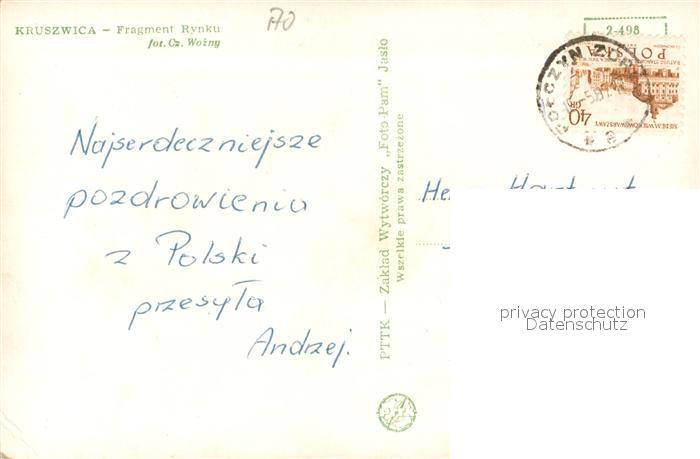 KRUSZWICA – Fragment Rynku
fot. Cz. Woźny
170
Najserdeczniejsze
pozdrowienia
z Polski
przesyła
Andrzej.
PTTK — Zakład Wytwórczy „Foto-Pam" Jasło
Wszelkie prawa zastrzeżone
2-498
POLSKA
40
GR
SIEDEM WIEKÓW WARSZAWY
POŁCZYN Z
a
privacy protection
Datenschutz